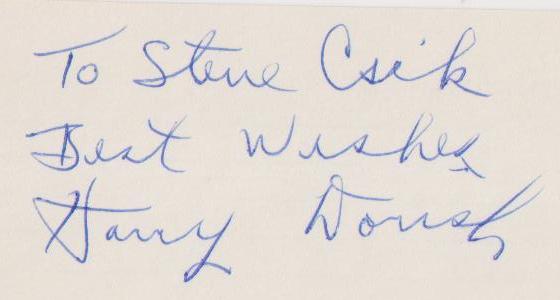 To Steve Csik
Best Wishes
Harry Dorish